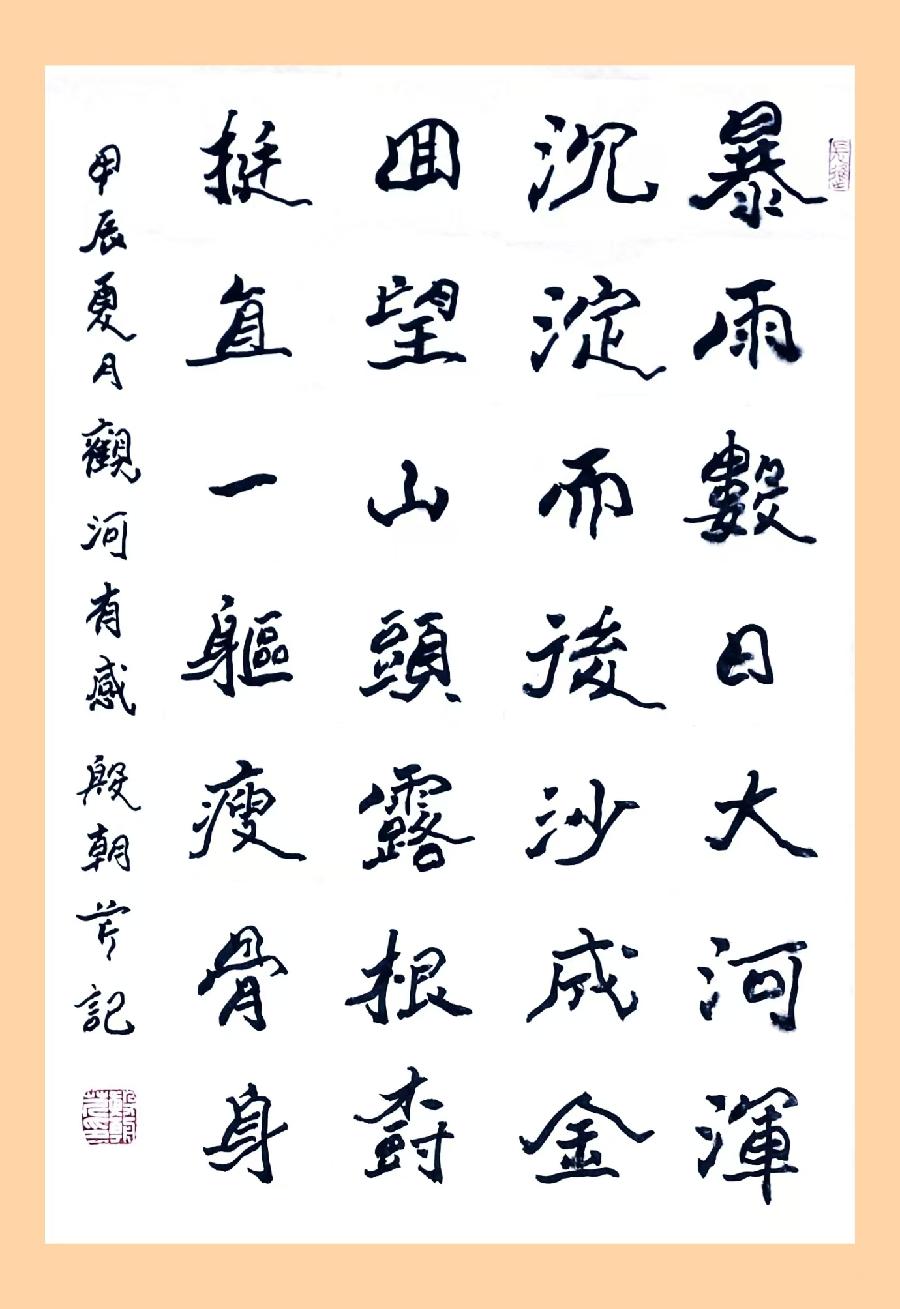 暴雨數日大河渾
沉淀而後沙成金
回望山頭露根樹
挺直一軀瘦骨身
甲辰夏月觀河有感 殷朝芹記